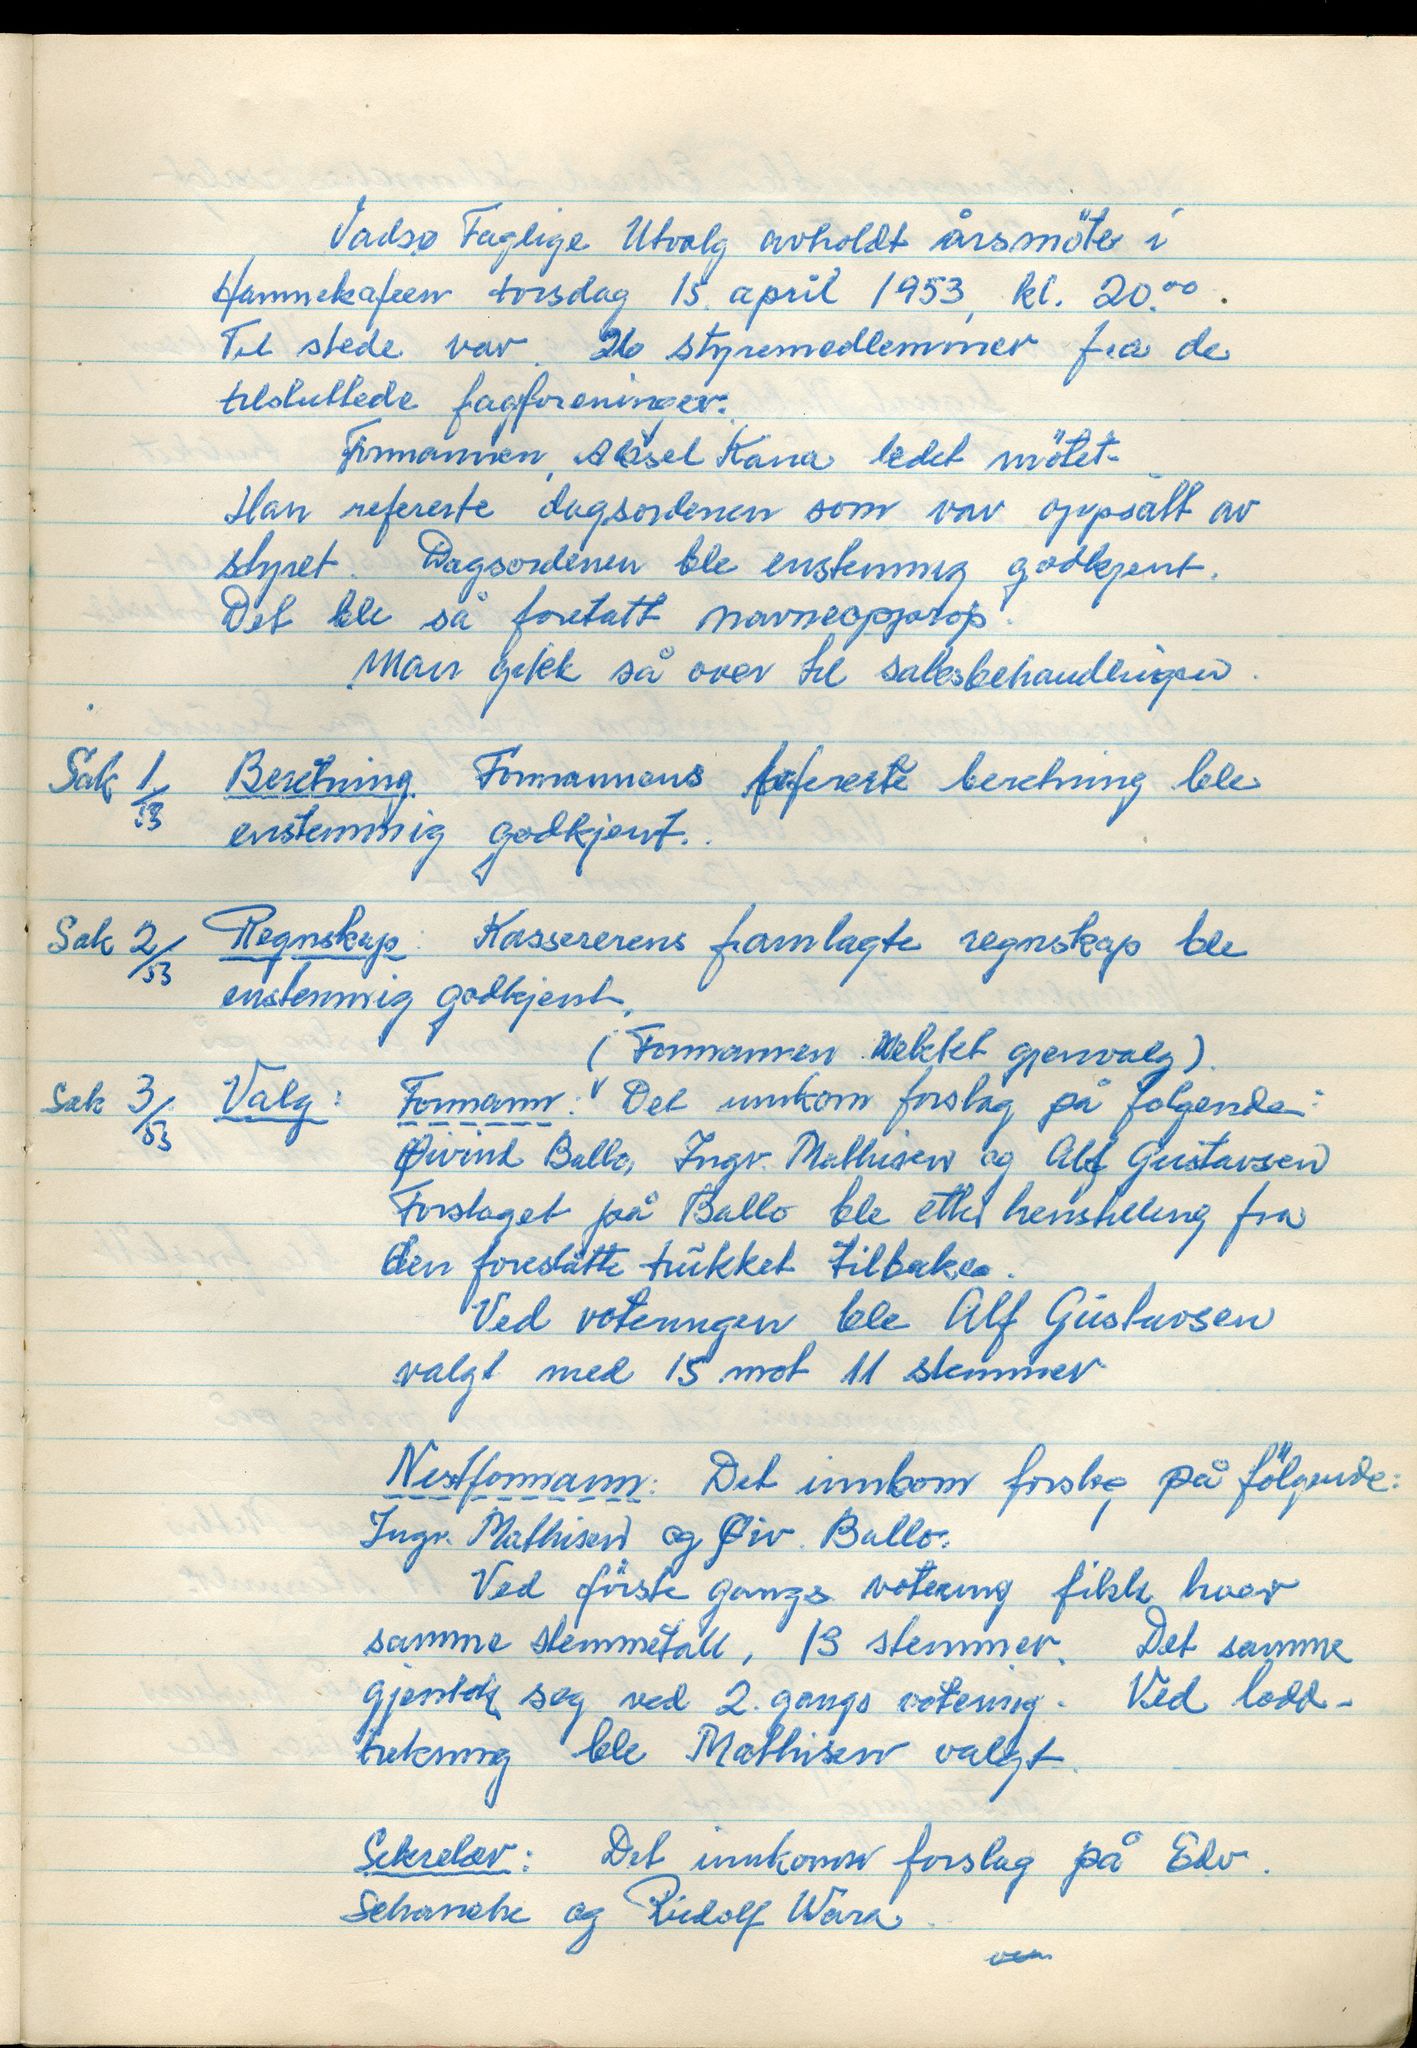 Vadsø Faglige Utvalg avholdt årsmöte i
Hannekafeen torsdag 15. april 1953, kl. 20.00.
Til stede var 26 styremedlemmer fra de
tilsluttede fagforeninger.
Formannen, Aksel Kana ledet mötet.
Han refererte dagsordenen som var oppsatt av
styret. Dagsordenen ble enstemmig godkjent.
Det ble så foretatt navneopprop.
Man gikk så over til saksbehandlingen.
Sak 1/53 Beretning. Formannens refererte beretning ble
enstemmig godkjent.
Sak 2/53 Regnskap: Kassererens framlagte regnskap ble
enstemmig godkjent.
(Formannen nektet gjenvalg).
Sak 3/53 Valg: Formann: Det innkom forslag på følgende:
Øivind Ballo, Ingv. Mathisen og Alf Gustavsen
Forslaget på Ballo ble etter henstilling fra
den foreslåtte trukket tilbake.
Ved voteringen ble Alf Gustavsen
valgt med 15 mot 11 stemmer
Nestformann: Det innkom forslag på fölgende:
Ingv. Mathisen og Øiv. Ballo.
Ved förste gangs votering fikk hver
samme stemmetall, 13 stemmer. Det samme
gjentok seg ved 2. gangs votering. Ved lodd-
trekning ble Mathisen valgt.
Sekretær: Det innkom forslag på Edv.
Schanche og Rudolf Wara.